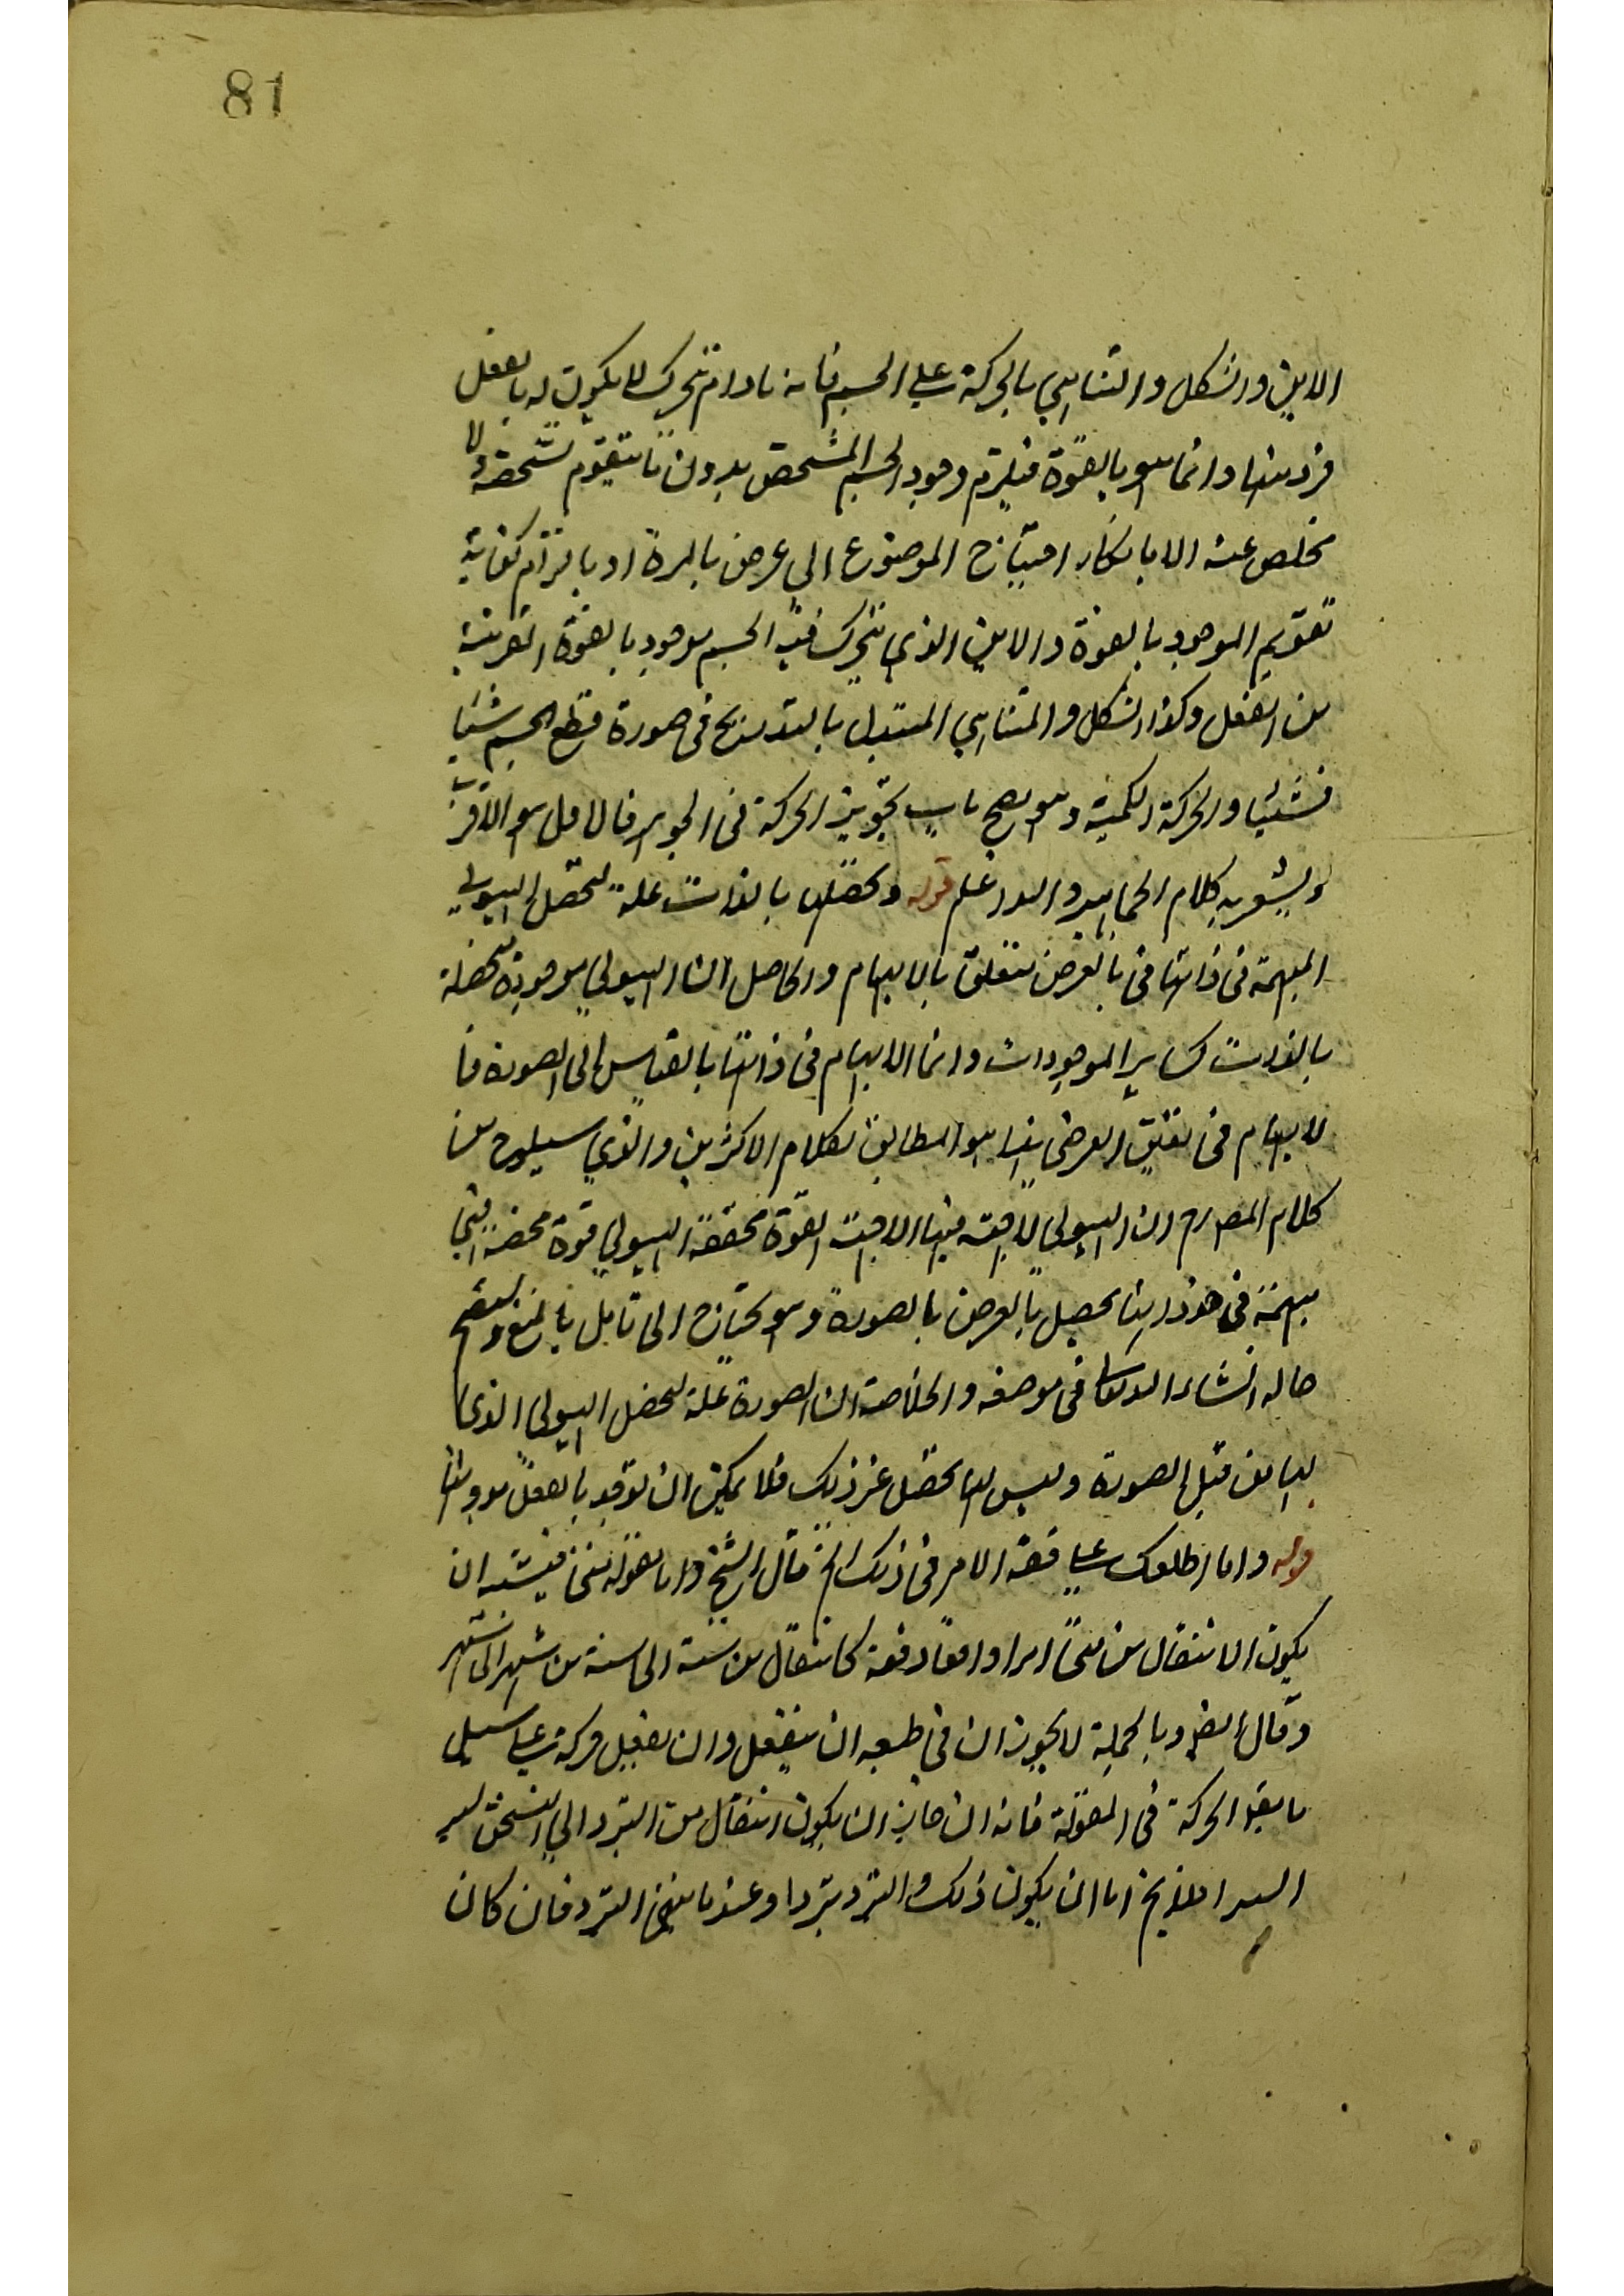 81
الاين والشكل والتناهي بالحركة على الجسم فانه مادام يتحرك لا يكون له بالفعل
فرد منها وانما هو بالقوة فيلزم وجود الجسم المشخص بدون ما يتقوم تشخصه ولا
مخلص عنه الا بانكار احتياج الموضوع الى عرض بالمرة او بالتزام كفاية
تقويم الموجود بالقوة والاين الذي يتحرك فيه الجسم موجود بالقوة القريبة
من الفعل وكذا الشكل والتناهي المتبدل بالتدريج في صورة قطع الجسم شيئا
فشيئا والحركة الكمية وهو يصح باب تجويز الحركة في الجوهر فالاول هو الاقرب
ويشعر به كلام الجماهير والله اعلم قوله وتحصلها بالذات علة لتحصل الهيولى
المبهمة في ذاتها في بالعرض متعلق بالابهام والحاصل ان الهيولى موجودة متحصلة
بالذات كساير الموجودات وانما الابهام في ذاتها بالقياس الى الصورة فا
لابهام في العرضى هذا هو المطابق لكلام الاكثرين والذي سيلوح من
كلام المصـ ان الهيولى لا فيها الا القوة فحقيقة الهيولى قوة محضة فهي
مبهمة في حد ذاتها تحصل بالعرض بالصورة وهو يحتاج الى تامل بالغ وليتضح
حاله انشاء الله تعالى في موضعه والخلاصة ان الصورة علة لتحصل الهيولى الذي
لها من قبل الصورة وليس لها تحصل غير ذلك فلا يمكن ان توجد بالفعل بدونها
قوله واما اطلاعك على حقيقة الامر في ذلك الخ قال الشيخ واما مقولة متى فيشبه ان
يكون الانتقال من متى امرا واقعا دفعة كانتقال من سنة الى سنة من شهر الى شهر
وقال ايضا وبالجملة لا يجوز ان في طبعه ان ينفعل وان يفعل حركة على سبيل
ما يقع الحركة في المقولة فانه ان جاز ان يكون انتقال من التبرد الى التسخن
يخ اما ان يكون ذلك والتبرد تبردا وعندما ينتهى التبرد فان كان